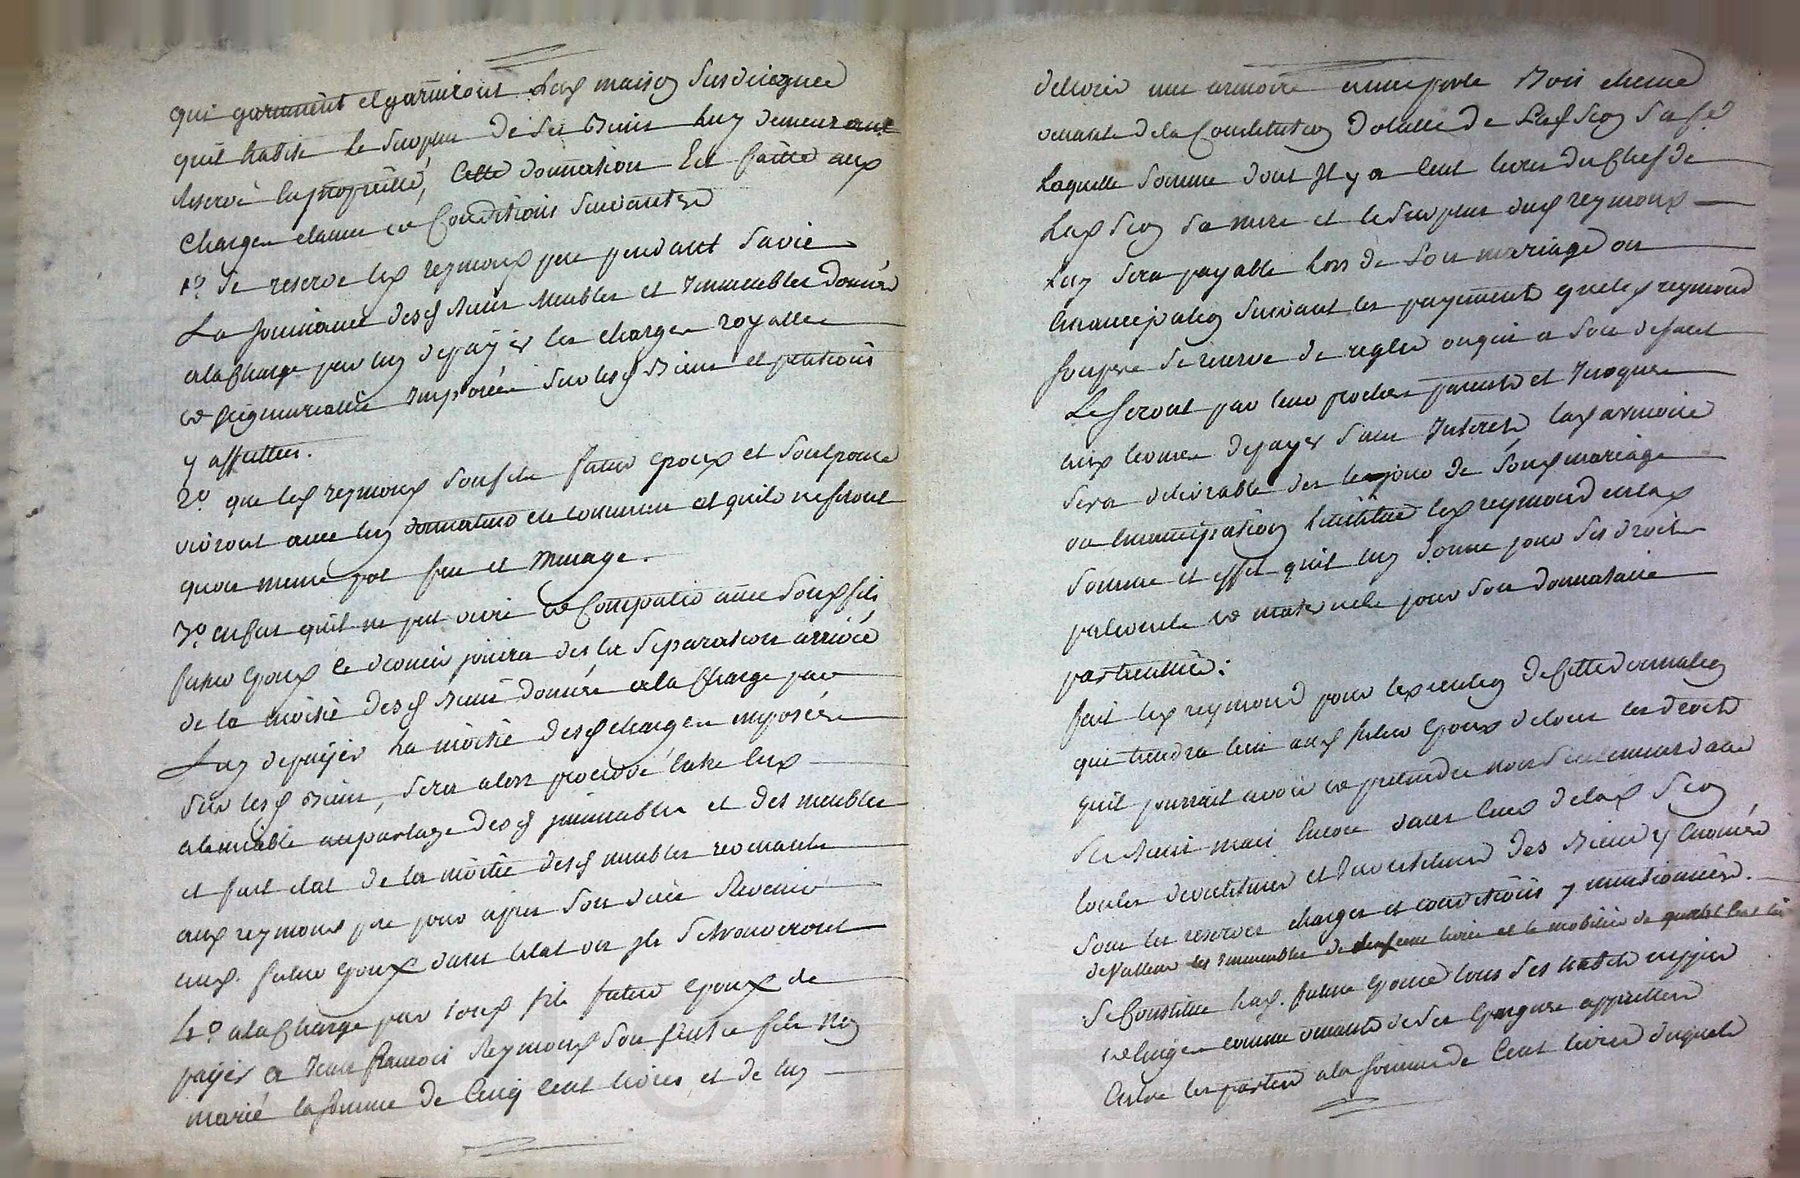 qui garnissent et garniront lad maison susdésignée
quil habite le surplus de ses biens luy demeurant
reservé en propriété, Cette donnation Est faitte aux
charges clauses et Conditions suivantes
1° Se reserve led reymond pere pendant sa vie
La jouissance desd biens meubles et Immeubles donnés
ala Charge par luy de payer les charges royalles
et seigneurialle Imposées sur lesd biens et pensions
y affectées.
2° que led reymond son fils futur epoux et son epouse
vivront avec luy donnateur en commun et quils ne feront
quun meme pot feu et menage.
3° enfin quil ne put vivre et Compatir avec son fils
futur Epoux ce dernier jouira des la separation arrivée
de la moitié desd biens donnés ala Charge par
Luy de payer La moitié desd charges imposées
sur lesd biens, sera alors procedé Entre Eux
alamiable au partage desd immeubles et des meubles
et fait etat de la moitié desd meubles revenants
aud reymond pere pour apres son décés Revenir
aud. futur Epoux dans letat ou ils se trouveront
4° ala Charge par soud fils futur Epoux de
payer a Jean francois Reymond son frere fils Non
marié la somme de Cinq Cent livres et de luy
délivrer une armoire a une porte Bois chesne
venante de la Constitution dotalle de Lad Scoy sa fe
Laquelle somme dont Il y a Cent livres du Chef de
Lad Scoy sa mere et le surplus dud reymond
Luy sera payable Lors de son mariage ou
Emancipation suivant les payements que led reymond
son pere se reserve de regler ou qui a son defaut
Le seront par leurs proches parents et Jusques
aux termes de payer sans Interets lad armoire
sera délivrable des le jour de soud mariage
ou Emancipation Linstitue led reymond en lad
somme et effet quil luy donne pour ses droits
paternels et maternels pour son donnataire
particulier:
fait led reymond pour lexecution de Cette donnation
qui tiendra lieu aud futur Epoux de tous les droits
quil pourrait avoir et pretendre non seulement dans
ses biens mais Encore dans Ceux de lad Scoy
toutes devestitures et Investitures des biens y Enoncés
sous les reserves charges et conditions y mentionnées.
de valleur les Immeubles de cent livres et le mobilier de quatre Cent liv
Se Constitue lad. future Epouse tous ses habits nippes
et linges comme venants de ses Epargnes appreties
Entre les parties a la somme de Cent livres duquel